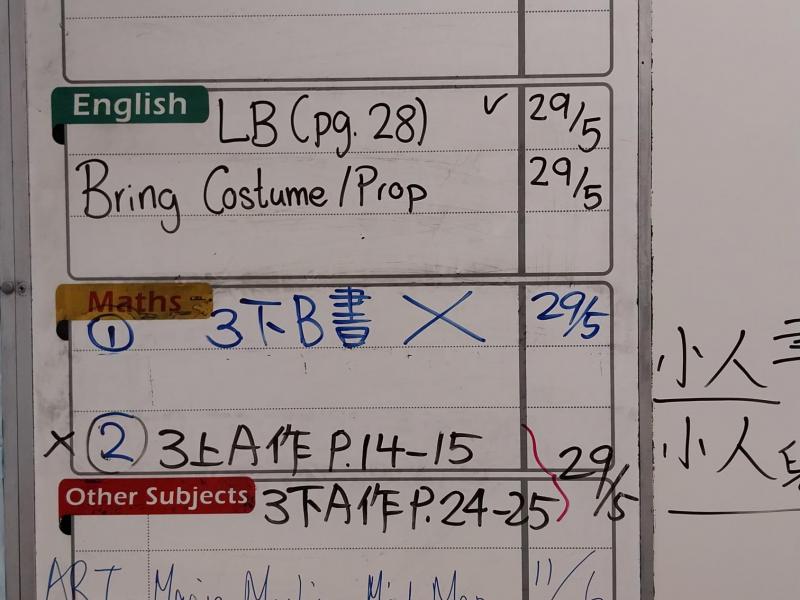 English LB (pg. 28) ✓ 29/5
Bring Costume/Prop 29/5
Maths
① 3下B書 X 29/5
x ② 3上A作 P.14-15
29/5
Other Subjects 3下A作 P.24-25
小人
小人
ART 11/